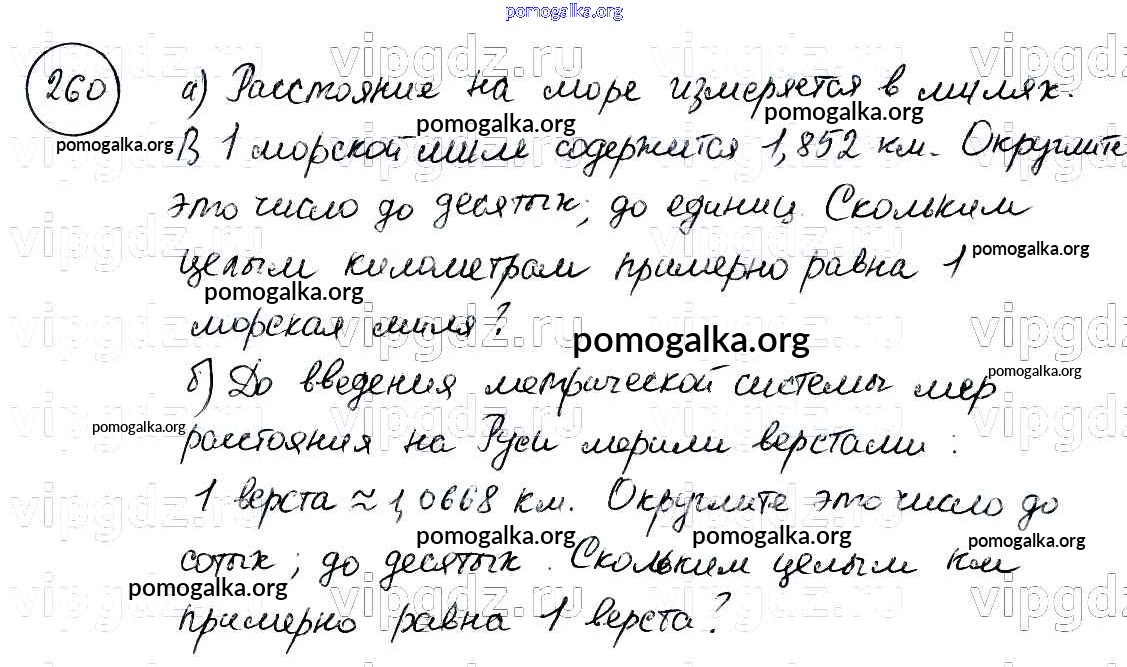 pomogalka.org
vipgdz.ru vipgdz.ru vipgdz.ru vipgdz
260 а) Расстояние на море измеряется в милях.
pomogalka.org pomogalka.org pomogalka.org
В 1 морской миле содержится 1,852 км. Округлите
это число до десятых; до единиц. Скольким
vipgdz.ru vipgdz.ru vipgdz.ru vipgdz
целым километрам примерно равна 1 pomogalka.org
pomogalka.org
морская миля?
vipgdz.ru vipgdz.ru vipgdz.ru vipgdz
pomogalka.org
б) До введения метрической системы мер
pomogalka.org
pomogalka.org
расстояния на Руси мерили верстами:
vipgdz.ru vipgdz.ru vipgdz.ru vipgdz
1 верста ≈ 1,0668 км. Округлите это число до
pomogalka.org pomogalka.org pomogalka.org
сотых; до десятых. Скольким целым км
pomogalka.org
vipgdz.ru vipgdz.ru vipgdz.ru vipgdz
примерно равна 1 верста?